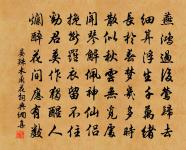 燕鴻過後鶯歸去
細算浮生千萬緒
長於春夢幾多時
散似秋雲無覓處
聞琴解佩神仙侶
挽斷羅衣留不住
勸君莫作獨醒人
爛醉花間應有數
晏殊木蘭花詞典網集